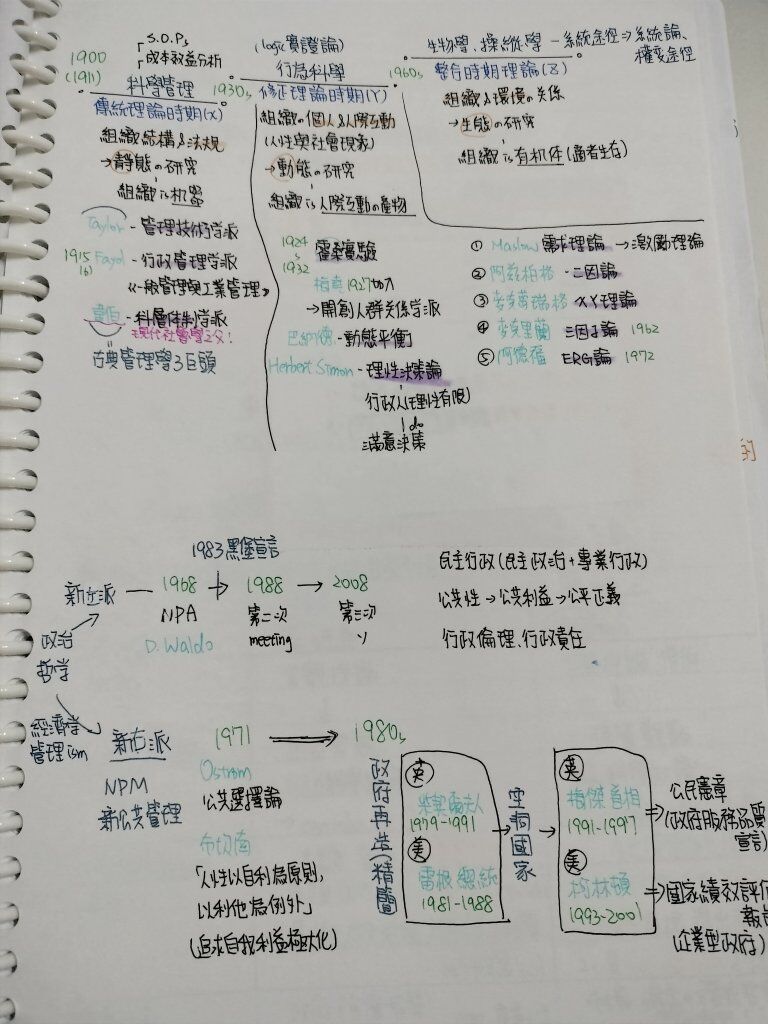 S.O.Ps
成本效益分析
1900
(1911)
科學管理
1930s
傳統理論時期(X)
組織結構&法規
→靜態の研究
組織is机器
Taylor-管理技術學派
1915
(6)
Fayol-行政管理学派
《一般管理與工業管理》
韋伯-科層体制学派
現代社會學之父!
古典管理學3巨頭
(logic實證論)
行為科學
1960s
修正理論時期(Y)
組織の個人&人際互動
(人性與社會現象)
→動態の研究
組織is人際互動の產物
1924
1932
霍桑實驗
梅堯1927加入
→開創人群关係学派
巴納德-動態平衡
Herbert Simon-理性決策論
行政人(理性有限)
do
滿意決策
生物學、操縱學-系統途徑⇒系統論、
權變途徑
整合時期理論(Z)
組織&環境の关係
→生態の研究
組織is有机体(適者生存)
① Maslow需求理論→激勵理論
② 阿茲柏格-二因論
③ 麥克葛瑞格-XY理論
④ 麥克里蘭 三因子論 1962
⑤ 阿德福 ERG論 1972
的
1983黑堡宣言
新左派—1968→1988→2008
NPA 第二次 第三次
D. Waldo meeting
政治
哲學
民主行政(民主政治+專業行政)
公共性→公共利益→公平正義
行政倫理、行政責任
經濟學
管理ism
新右派
NPM
新公共管理
1971
Ostrom
公共選擇論
布坎南
「人性以自利為原則,
以利他為例外」
(追求自我利益極大化)
1980s
政府再造(精簡)
英
柴契爾夫人
1979-1991
美
雷根總統
1981-1988
空洞國家
英
梅傑首相
1991-1997
美
柯林頓
1993-2001
公民憲章
(政府服務品質
宣言)
國家績效評估
報告
(企業型政府)